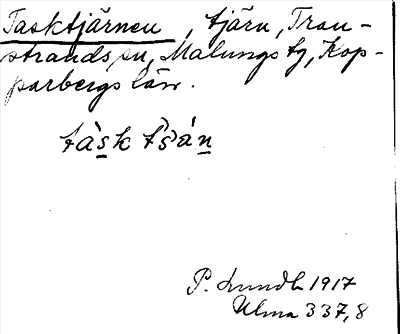 Tasktjärnen, tjärn, Tran-
strands sn, Malungs tg, Kop-
parbergs län.
tàsk tʃ̀án
P. Lundh 1917
Ulma 337,8